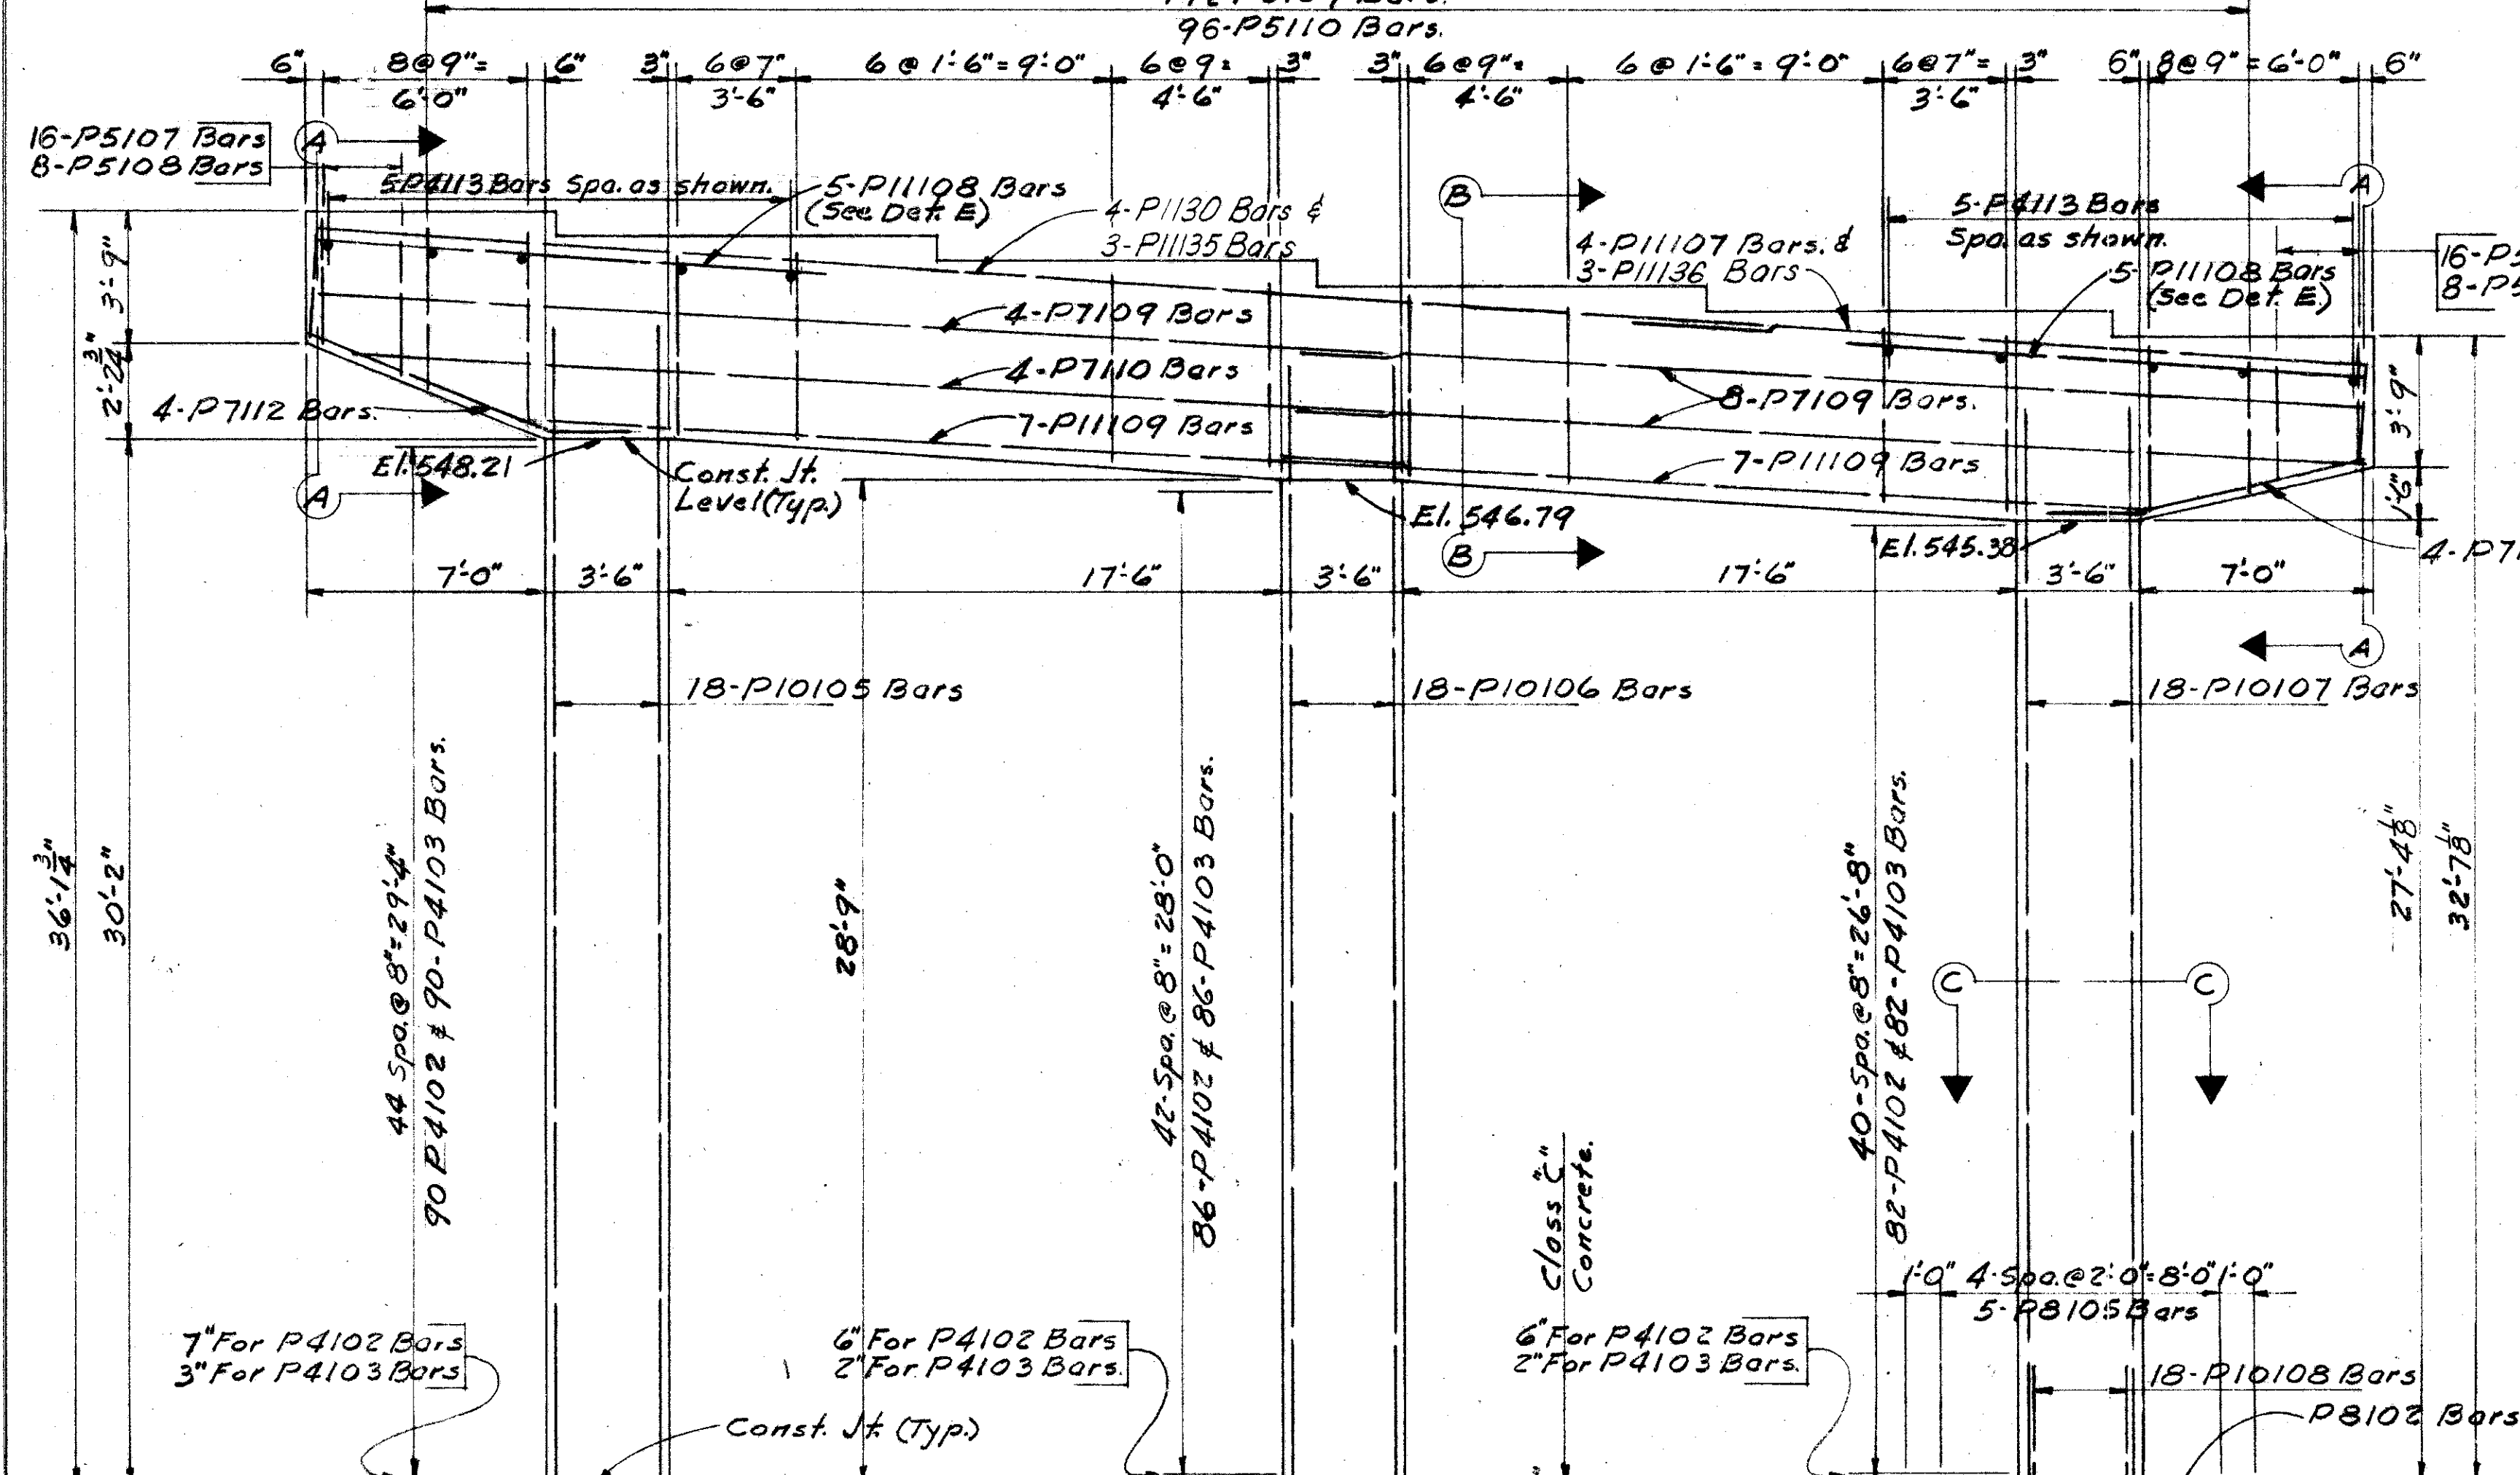 96-P5110 Bars.
6" 8@9"= 6" 3" 6@7" 6 @ 1'-6"=9'-0" 6@9= 3" 3" 6@9"= 6 @ 1'-6"=9'-0" 6@7"= 3" 6" 8@9"=6'-0" 6"
6'-0" 3'-6" 4'-6" 4'-6" 3'-6"
16-P5107 Bars
8-P5108 Bars
A
5P4113 Bars Spa. as shown.
5-P11108 Bars
(See Det. E)
4-P1130 Bars &
3-P11135 Bars
B
4-P11107 Bars. &
3-P11136 Bars
5-P4113 Bars
Spa. as shown.
A
5-P11108 Bars
(See Det. E)
16-P5
8-P5
3'-9"
2'-2 3/4"
4-P7109 Bars
4-P7110 Bars
7-P11109 Bars
4-P7112 Bars.
8-P7109 Bars.
7-P11109 Bars
3'-9"
1'-6"
El. 548.21
Const. Jt.
Level (Typ.)
A
El. 546.79
B
El. 545.38
4-P71
7'-0" 3'-6" 17'-6" 3'-6" 17'-6" 3'-6" 7'-0"
A
18-P10105 Bars
18-P10106 Bars
18-P10107 Bars
36'-1 3/4"
30'-2"
44 Spa. @ 8"=29'-4"
90 P4102 & 90-P4103 Bars.
28'-9"
42-Spa. @ 8"=28'-0"
86-P4102 & 86-P4103 Bars.
Class "C"
Concrete.
40-Spa. @ 8"=26'-8"
82-P4102 & 82-P4103 Bars.
27'-4 1/8"
32'-7 1/8"
C C
1'-0" 4-Spa. @ 2'-0"=8'-0" 1'-0"
5-P8105 Bars
7" For P4102 Bars
3" For P4103 Bars
6" For P4102 Bars
2" For P4103 Bars.
6" For P4102 Bars
2" For P4103 Bars.
18-P10108 Bars
P8102 Bars
Const. Jt. (Typ.)